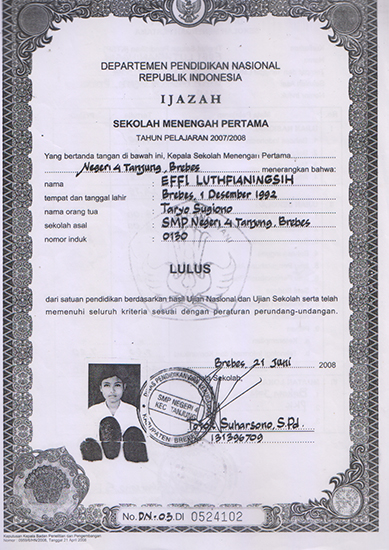 DEPARTEMEN PENDIDIKAN NASIONAL
REPUBLIK INDONESIA
IJAZAH
SEKOLAH MENENGAH PERTAMA
TAHUN PELAJARAN 2007/2008
Yang bertanda tangan di bawah ini, Kepala Sekolah Menengah Pertama
Negeri 4 Tanjung, Brebes menerangkan bahwa:
nama : EFFI LUTHFIANINGSIH
tempat dan tanggal lahir : Brebes, 1 Desember 1992
nama orang tua : Taryo Sugiono
sekolah asal : SMP Negeri 4 Tanjung, Brebes
nomor induk : 0130
LULUS
dari satuan pendidikan berdasarkan hasil Ujian Nasional dan Ujian Sekolah serta telah
memenuhi seluruh kriteria sesuai dengan peraturan perundang-undangan.
Brebes, 21 Juni 2008
Kepala Sekolah,
SMP NEGERI 4
KEC. TANJUNG
KABUPATEN BREBES
Suharsono, S.Pd.
131396709
No. DN-03 DI 0524102
Keputusan Kepala Badan Penelitian dan Pengembangan